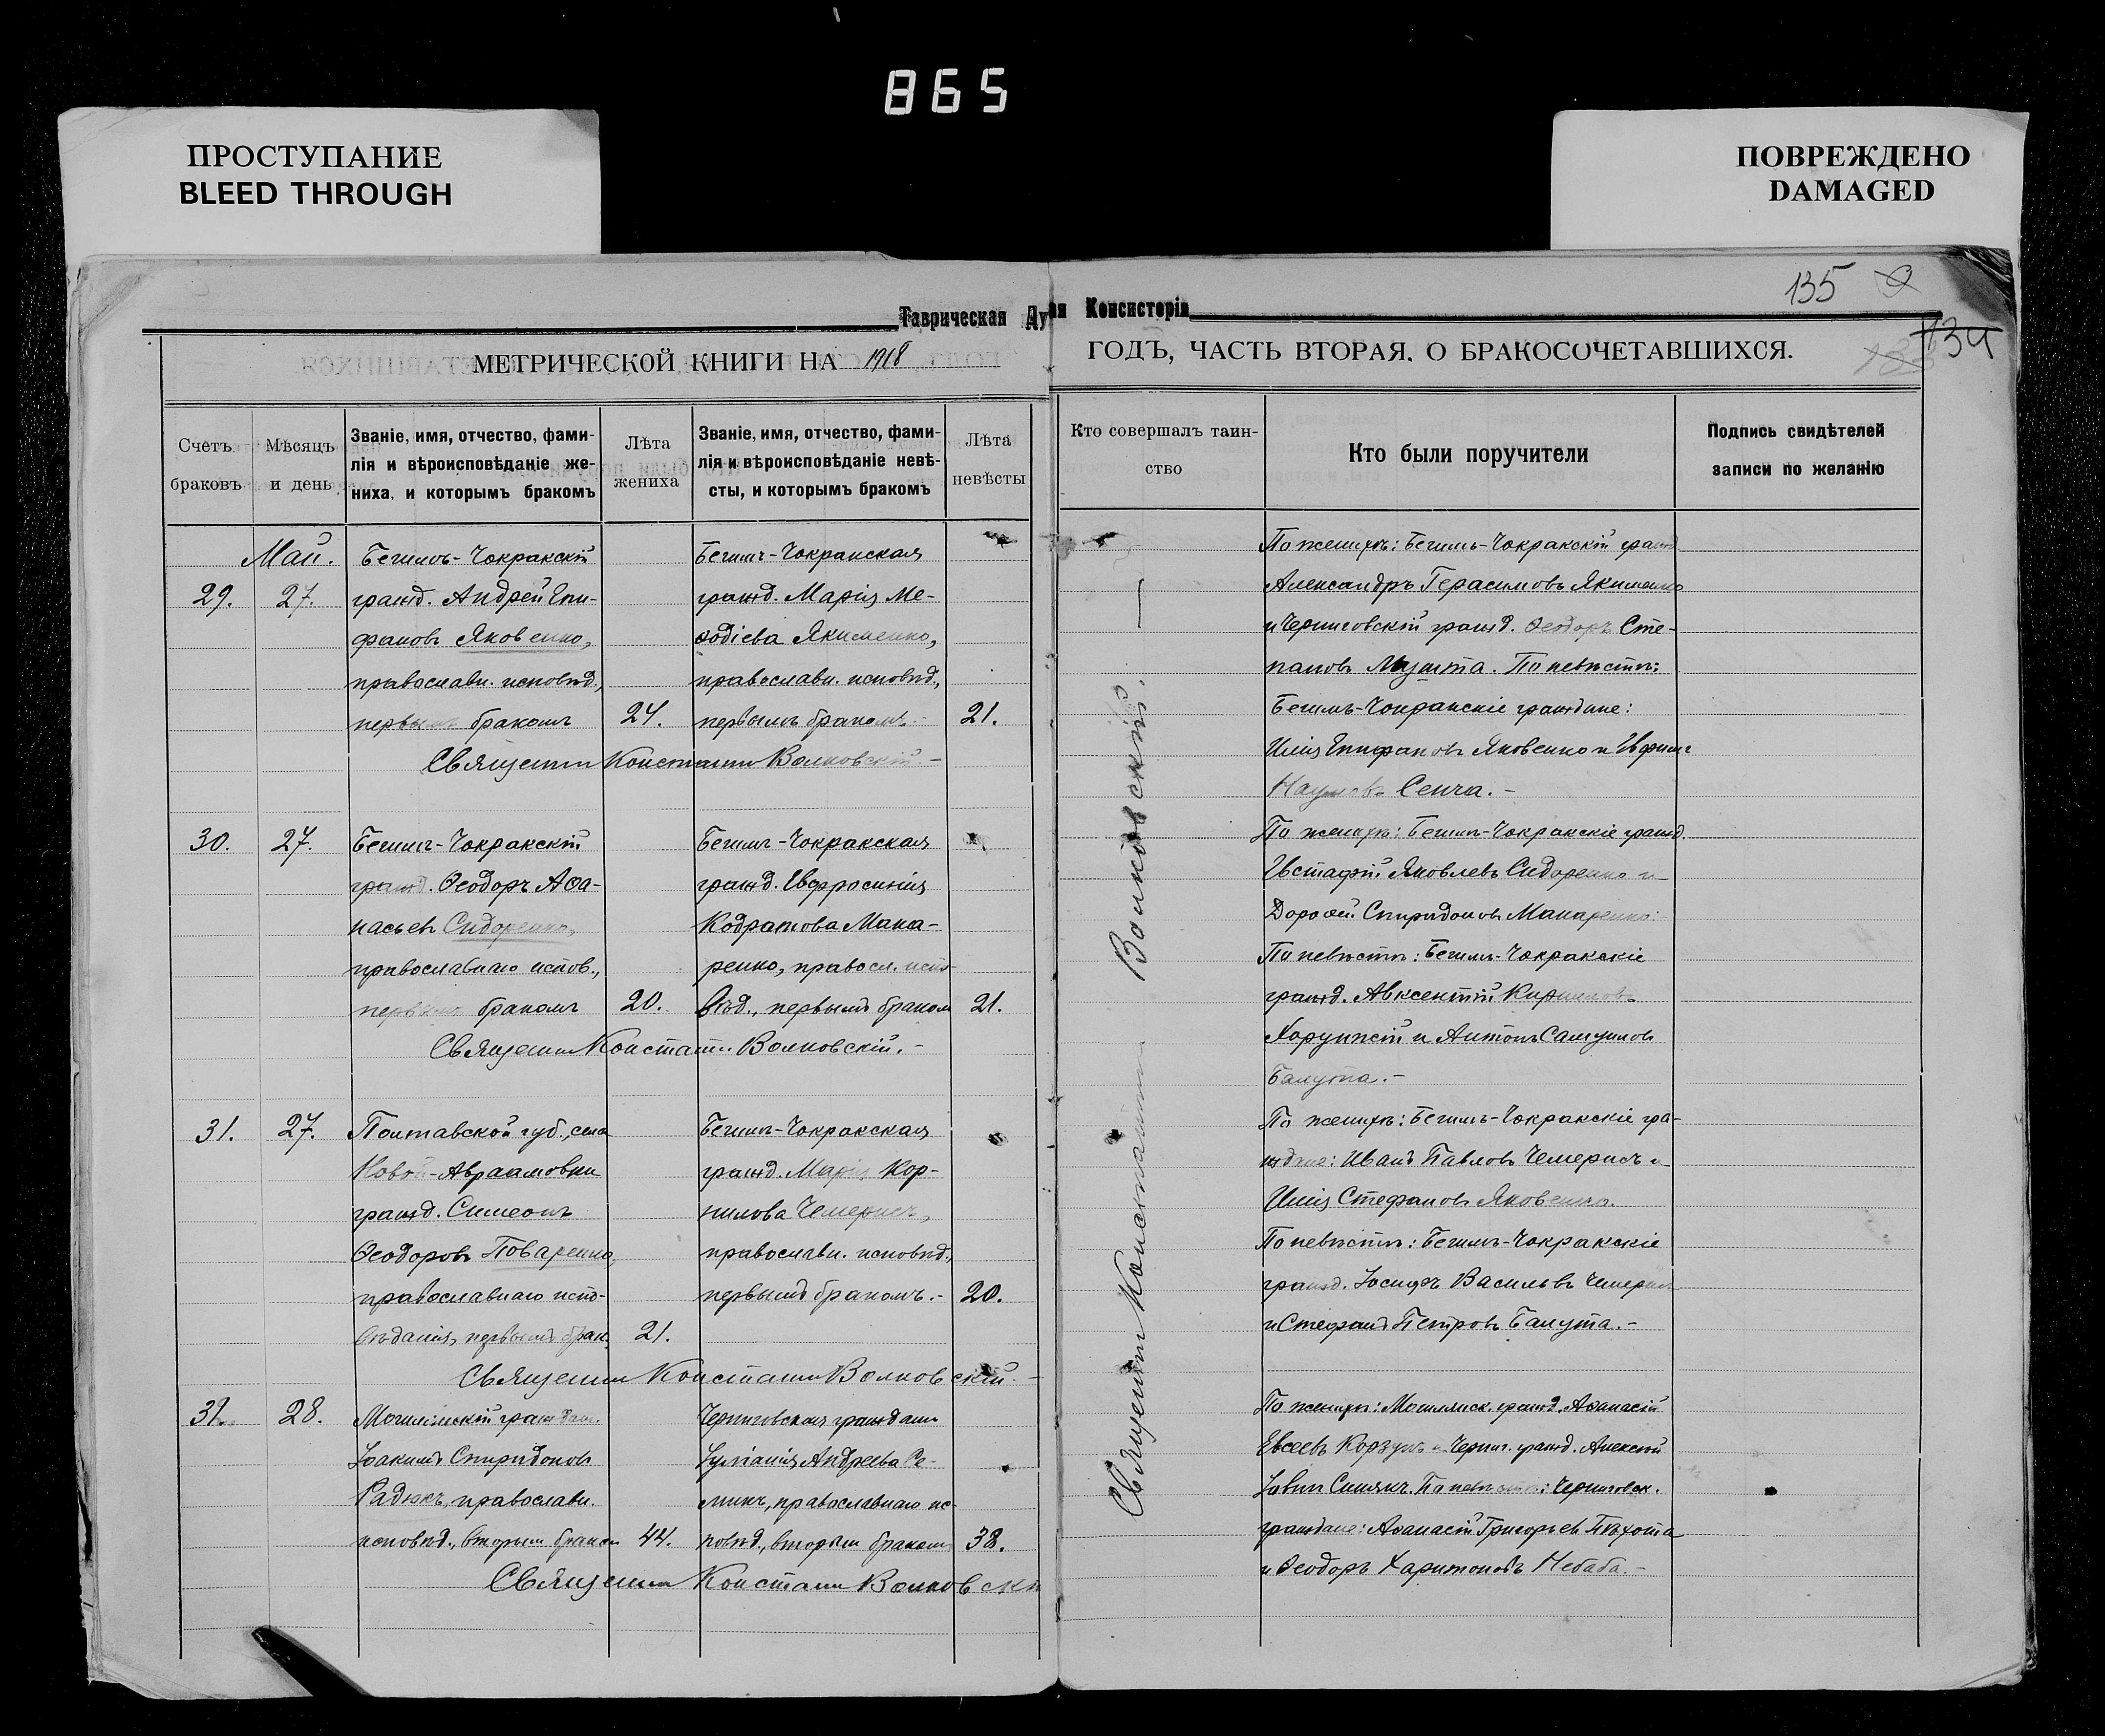 865
ПРОСТУПАНИЕ
BLEED THROUGH
ПОВРЕЖДЕНО
DAMAGED
135
134
Таврическая Ду
ая Консисторія
МЕТРИЧЕСКОЙ КНИГИ НА 1918
ГОДЪ, ЧАСТЬ ВТОРАЯ, О БРАКОСОЧЕТАВШИХСЯ.
Счетъ
браковъ
Мѣсяцъ
и день
Званіе, имя, отчество, фами-
лія и вѣроисповѣданіе же-
ниха, и которымъ бракомъ
Лѣта
жениха
Званіе, имя, отчество, фами-
лія и вѣроисповѣданіе невѣ-
сты, и которымъ бракомъ
Лѣта
невѣсты
Кто совершалъ таин-
ство
Кто были поручители
Подпись свидѣтелей
записи по желанію
Май.
29.
27.
Бегимъ-Чокракскій
гражд. Андрей Епи-
фановъ Яковенко,
православн. исповѣд.,
первымъ бракомъ
24.
Бегимъ-Чокракская
гражд. Марія Ме-
ѳодіева Якименко,
православн. исповѣд.,
первымъ бракомъ.-
21.
Священник Константин Волковскій.-
По женихѣ: Бегимъ-Чокракскій гражд
Александръ Герасимовъ Якименко
и Черниговскій гражд. Ѳеодоръ Сте-
пановъ Мушта. По невѣстѣ:
Бегимъ-Чокракскіе граждане:
Илія Епифановъ Яковенко и
Наумовъ Сенча.-
30.
27.
Бегимъ-Чокракскій
гражд. Ѳеодоръ Аѳа-
насьевъ Сидоренко,
православнаго испов.,
первымъ бракомъ
20.
Бегимъ-Чокракская
гражд. Евфросинія
Кодратова Мака-
ренко, правосл. испо-
вѣд., первымъ браком
21.
Священник Констант. Волковскій.-
По женихѣ: Бегимъ-Чокракскіе гражд.
Евстафій Яковлевъ Сидоренко и
Дороѳей Спиридоновъ Макаренко.
По невѣстѣ: Бегимъ-Чокракскіе
гражд. Авксентій Кирилловъ
Хорунжій и Антонъ Самуиловъ
Балута.-
31.
27.
Полтавской губ., села
Ново-Авраамовки
гражд. Симеонъ
Ѳеодоровъ Поваренко,
православнаго испо-
вѣданія, первымъ брак.
21.
Бегимъ-Чокракская
гражд. Марія Кор-
нилова Чемерисъ,
православн. исповѣд.,
первымъ бракомъ.-
20.
Священник Константин Волковскій.-
По женихѣ: Бегимъ-Чокракскіе гра-
ждане: Иванъ Павловъ Чемерисъ и
Илія Стефановъ Яковенко.
По невѣстѣ: Бегимъ-Чокракскіе
гражд. Іосифъ Васильевъ Чемерисъ
и Стефанъ Петровъ Балута.-
32.
28.
Могилевскій граждан.
Іоакимъ Спиридоновъ
Радюкъ, православн.
исповѣд., вторым браком
44.
Черниговская граждан.
Іуліанія Андреева Ре-
микъ, православнаго ис-
повѣд., вторым браком
38.
Священник Константин Волковскій
По женихѣ: гражд. Аѳанасій
Евсеевъ Корзунъ и Черниг. гражд. Алексій
По невѣстѣ: Черниговск.
граждане: Аѳанасій Григорьевъ Пѣхота
и Ѳеодоръ Харитоновъ Небаба.-
Священник Константин Волковскій.